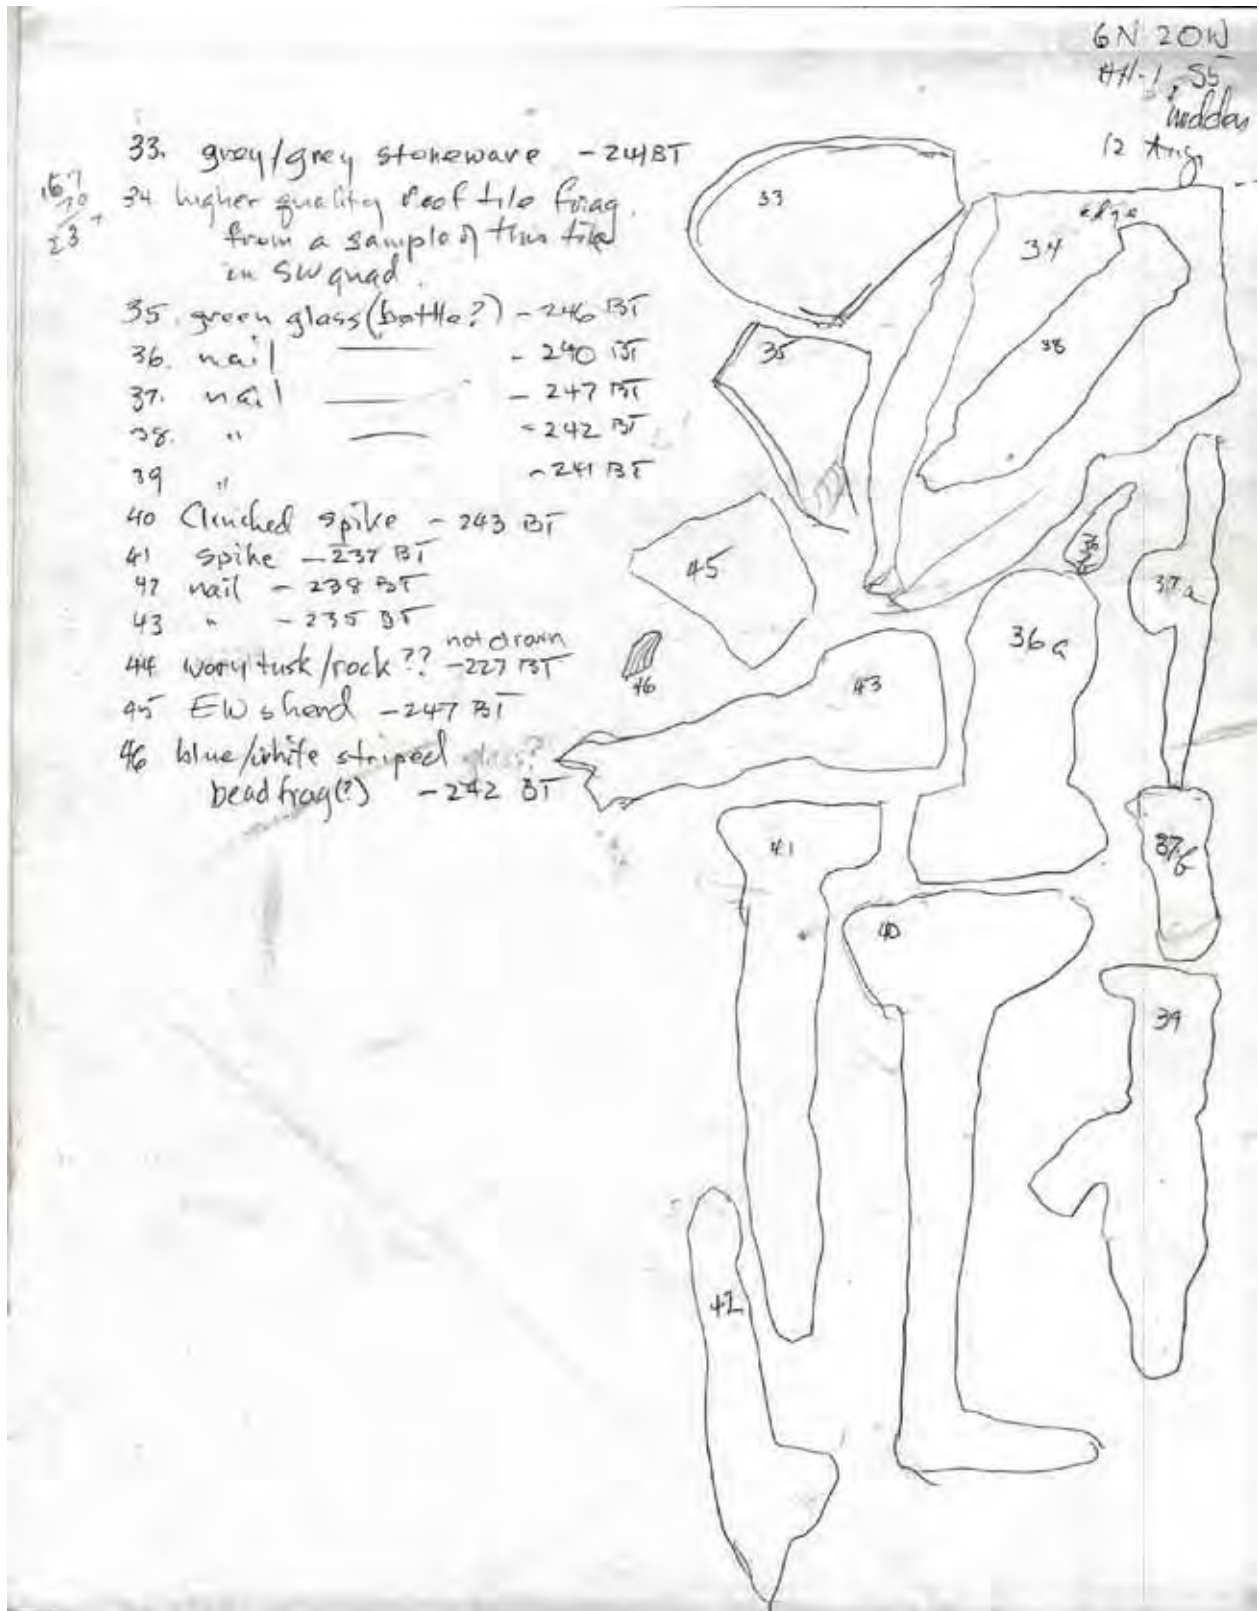 6N 20W
S5
midden
12 Aug
33. grey/grey stoneware - 241 BT
34 higher quality roof tile frag.
from a sample of this tile
in SW quad.
35. green glass (bottle?) - 246 BT
36. nail - 240 BT
37. nail - 247 BT
38. " - 242 BT
39 " - 241 BT
40 Clinched spike - 243 BT
41 spike - 237 BT
42 nail - 238 BT
43 " - 235 BT
not drawn
44 ivory tusk/rock?? - 227 BT
45 EW sherd - 247 BT
46 blue/white striped glass?
bead frag(?) - 242 BT
33
edge
34
35
38
45
36b
37a
36a
46
43
41
37b
40
39
42